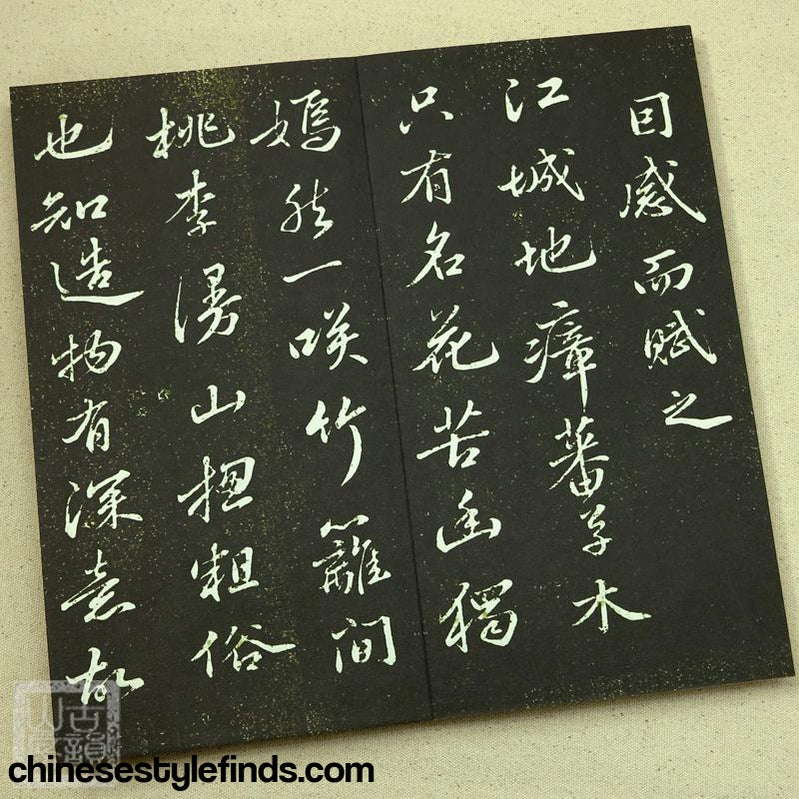 因感而賦之
江城地瘴蕃草木
只有名花苦幽獨
嫣然一咲竹籬間
桃李漫山揔粗俗
也知造物有深意故
chinesestylefinds.com